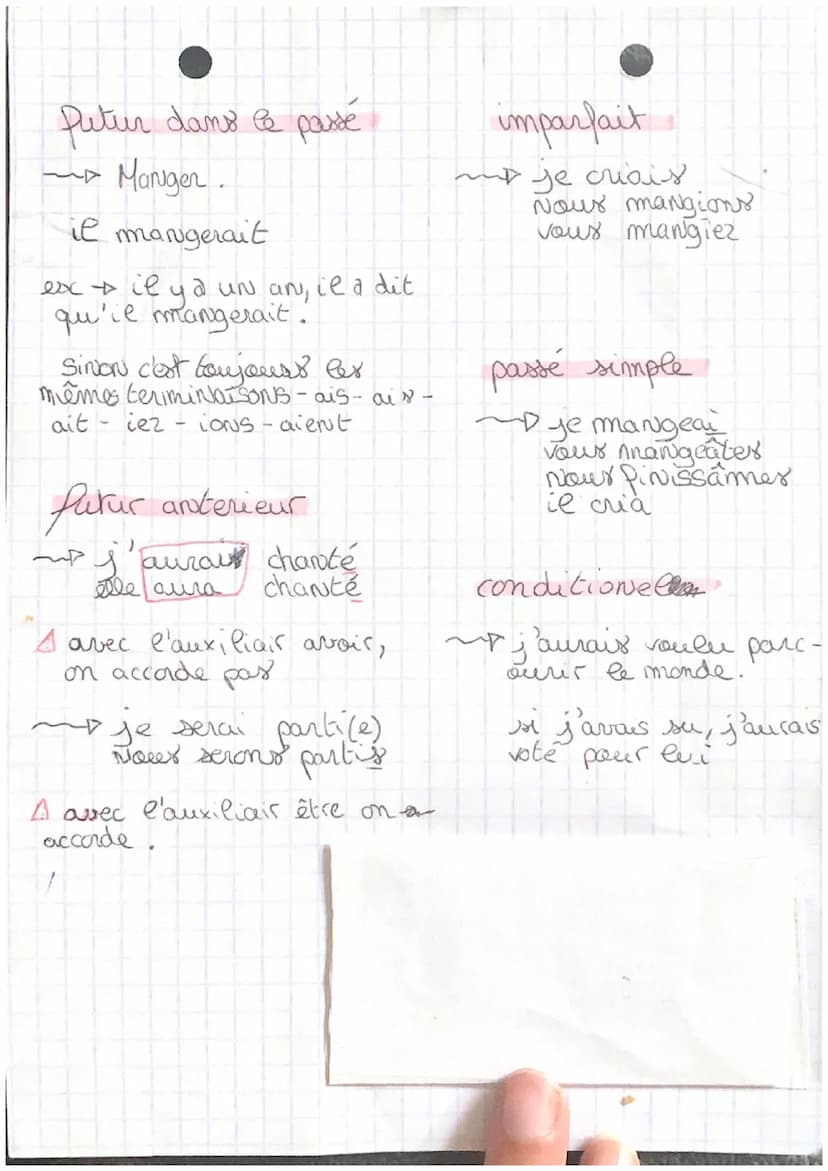 futur dans le passé
~~> Manger.
il mangerait
ex -> il y a un an, il a dit
qu'il mangerait.
Sinon c'est toujours les
mêmes terminaisons - ais - ais -
ait - iez - ions - aient
futur anterieur
~~> j'aurai chanté
elle aura chanté
⚠ avec l'auxiliair avoir,
on accorde pas
~~> je serai parti(e)
nous serons partis
⚠ avec l'auxiliair être on
accorde.
imparfait
~~> je criais
nous mangions
vous mangiez
passé simple
~~> je mangeai
vous mangeâtes
nous finissâmes
il cria
conditionel
~~> j'aurais voulu parc-
ourir le monde.
si j'avais su, j'aurais
voté pour lui